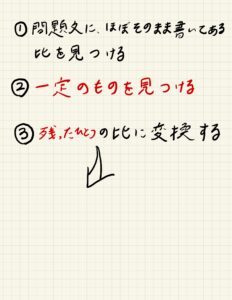 ① 問題文に、ほぼそのまま書いてある
比を見つける
② 一定のものを見つける
③ 残ったひとつの比に変換する